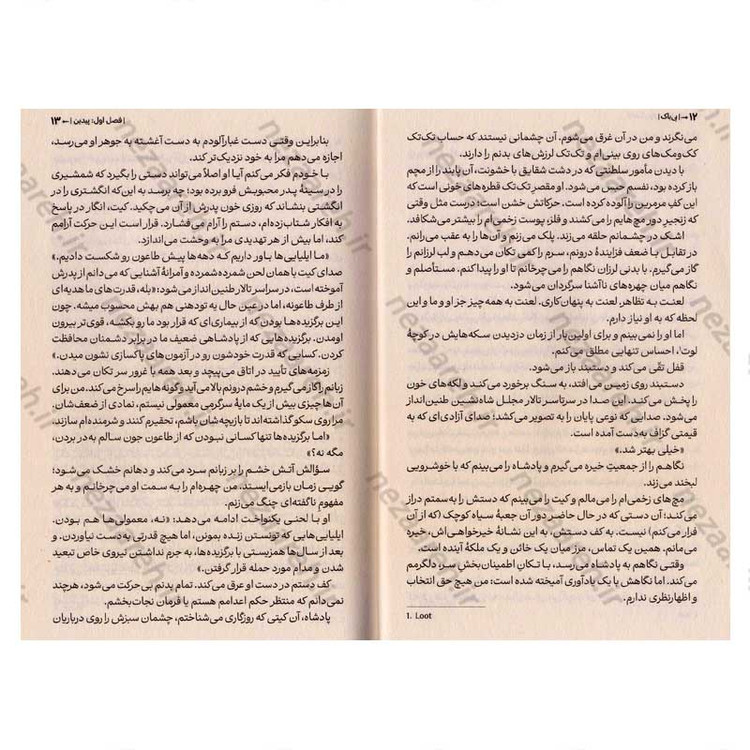 ۱۲ | بی‌باک |
می‌نگرند و من در آن غرق می‌شوم. آن چشمانی نیستند که حساب تک‌تک
کک‌ومک‌های روی بینی‌ام و تک‌تک لرزش‌های بدنم را دارند.
با دیدن مأمور سلطنتی که در دشت شقایق با خشونت، آن پابند را از مچم
باز کرده بود، نفسم حبس می‌شود. او مقصر تک‌تک قطره‌های خونی است که
این کفِ مرمرین را آلوده کرده است. حرکاتش خشن است؛ درست مثل وقتی
که زنجیرِ دور مچ‌هایم را می‌کشند و فلز، پوست زخمی‌ام را بیشتر می‌شکافد.
اشک در چشمانم حلقه می‌زند. پلک می‌زنم و آن‌ها را به عقب می‌رانم.
در تقابل با ضعف فزایندهٔ درونم، سرم را کمی تکان می‌دهم و لب لرزانم را
گاز می‌گیرم. با بدنی لرزان نگاهم را می‌چرخانم تا او را پیدا کنم. مستأصلم و
نگاهم میان چهره‌های ناآشنا سرگردان می‌شود.
لعنت به تظاهر. لعنت به پنهان‌کاری. لعنت به همه‌چیز جز او و ما و این
لحظه که به او نیاز دارم.
اما او را نمی‌بینم و برای اولین‌بار از زمان دزدیدن سکه‌هایش در کوچهٔ
لوت۱، احساس تنهایی مطلق می‌کنم.
قفل تقّی می‌کند و دستبند باز می‌شود.
دستبند روی زمین می‌افتد، به سنگ برخورد می‌کند و لکه‌های خون
را پخش می‌کند. این صدا در سرتاسر تالار مجلل شاه‌نشین طنین‌انداز
می‌شود. صدایی که نوعی پایان را به تصویر می‌کشد؛ صدای آزادی‌ای که به
قیمتی گزاف به‌دست آمده است.
«خیلی بهتر شد.»
نگاهم را از جمعیتِ خیره می‌گیرم و پادشاه را می‌بینم که با خوشرویی
لبخند می‌زند.
مچ‌های زخمی‌ام را می‌مالم و کیت را می‌بینم که دستش را به سمتم دراز
می‌کند؛ آن دستی که در حال حاضر دور آن جعبهٔ سیاه کوچک (که از آن
فرار می‌کنم) نیست. به کف دستش، به این نشانهٔ خیرخواهی‌اش، خیره
می‌مانم. همین یک تماس، مرز میان یک خائن و یک ملکهٔ آینده است.
وقتی نگاهم به پادشاه می‌رسد، با تکانِ اطمینان‌بخشِ سر، دلگرمم
می‌کند. اما نگاهش با یک یادآوری آمیخته شده است: من هیچ حق انتخاب
و اظهارنظری ندارم.
1. Loot
| فصل اول: پیدین | ۱۳
بنابراین وقتی دست غبارآلودم به دست آغشته به جوهر او می‌رسد،
اجازه می‌دهم مرا به خود نزدیک‌تر کند.
با خودم فکر می‌کنم آیا او اصلاً می‌تواند دستی را بگیرد که شمشیری
را در سینهٔ پدر محبوبش فرو برده بود؛ چه برسد به این‌که انگشتری را در
انگشتی بنشاند که روزی خون پدرش از آن می‌چکید. کیت، انگار در پاسخ
به افکار شتاب‌زده‌ام، دستم را آرام می‌فشارد. قرار است این حرکت آرامم
کند، اما بیش از هر تهدیدی مرا به وحشت می‌اندازد.
«ما ایلیایی‌ها باور داریم که دهه‌ها پیش طاعون رو شکست دادیم.»
صدای کیت با همان لحن شمرده‌شمرده و آمرانهٔ آشنایی که می‌دانم از پدرش
آموخته است، در سراسر تالار طنین‌انداز می‌شود: «بله، قدرت‌های ما هدیه‌ای
از طرف طاعونه، اما در عین حال یه تودهنی هم بهش محسوب میشه. چون
این برگزیده‌ها بودن که از بیماری‌ای که قرار بود ما رو بکشه، قوی‌تر بیرون
اومدن. برگزیده‌هایی که از پادشاهی ضعیف ما در برابر دشمنان محافظت
کردن. کسایی که قدرت خودشون رو در آزمون‌های پاکسازی نشون میدن.»
زمزمه‌های تأیید در اتاق می‌پیچد و بعد همه با غرور سر تکان می‌دهند.
زبانم را گاز می‌گیرم و خشم درونم بالا می‌آید و گونه‌هایم را سرخ می‌کند. من برای
آن‌ها چیزی بیش از یک مایهٔ سرگرمی معمولی نیستم، نمادی از ضعف‌شان.
مرا روی سکو گذاشته‌اند تا بازیچه‌شان باشم، تحقیرم کنند و شرمنده‌ام سازند.
«اما برگزیده‌ها تنها کسانی نبودن که از طاعون جون سالم به‌در بردن،
مگه نه؟»
سؤالش آتش خشم را بر زبانم سرد می‌کند و دهانم خشک می‌شود؛
گویی زمان بازمی‌ایستد. من چهره‌ام را به سمت او می‌چرخانم و به هر
مفهوم ناگفته‌ای چنگ می‌زنم.
او با لحنی یکنواخت ادامه می‌دهد: «نه، معمولی‌ها هم بودن.
ایلیایی‌هایی که تونستن زنده بمونن، اما هیچ قدرتی به‌دست نیاوردن. و
بعد از سال‌ها همزیستی با برگزیده‌ها، به جرم نداشتن نیروی خاص تبعید
شدن و مدام مورد حمله قرار گرفتن.»
کف دستم در دست او عرق می‌کند. تمام بدنم بی‌حرکت می‌شود، هرچند
نمی‌دانم که منتظر حکم اعدامم هستم یا فرمان نجات‌بخشم.
پادشاه، آن کیتی که روزگاری می‌شناختم، چشمان سبزش را روی درباریان
nezaareh.ir